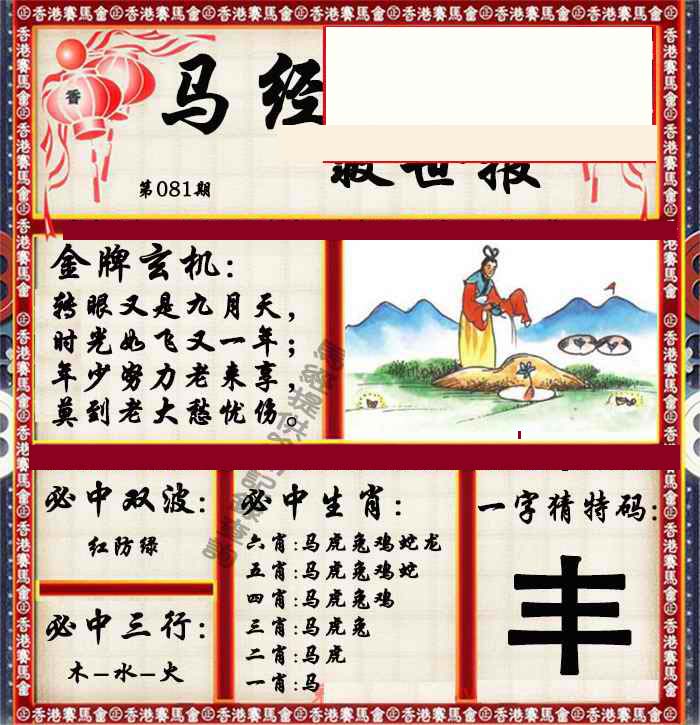 香港賽馬會
馬經
马经
救世报
第081期
金牌玄机:
转眼又是九月天,
时光如飞又一年;
年少努力老来享,
莫到老大愁忧伤。
必中双波:
红防绿
必中三行:
木-水-火
必中生肖:
六肖:马虎兔鸡蛇龙
五肖:马虎兔鸡蛇
四肖:马虎兔鸡
三肖:马虎兔
二肖:马虎
一肖:马
一字猜特码:
丰